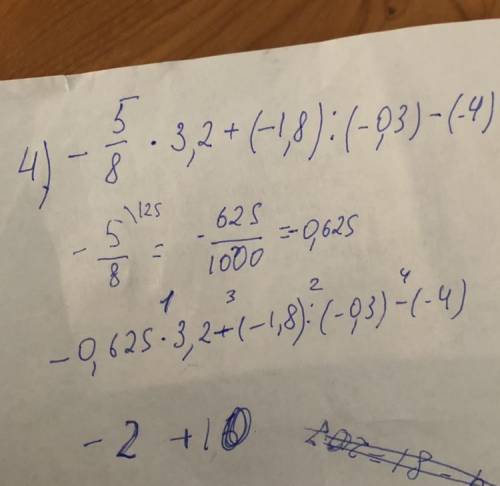 4) - 5/8 · 3,2 + (-1,8) : (-0,3) - (-4)
- 5/8 \125 = - 625/1000 = -0,625
1 3 2 4
-0,625 · 3,2 + (-1,8) : (-0,3) - (-4)
-2 + 10